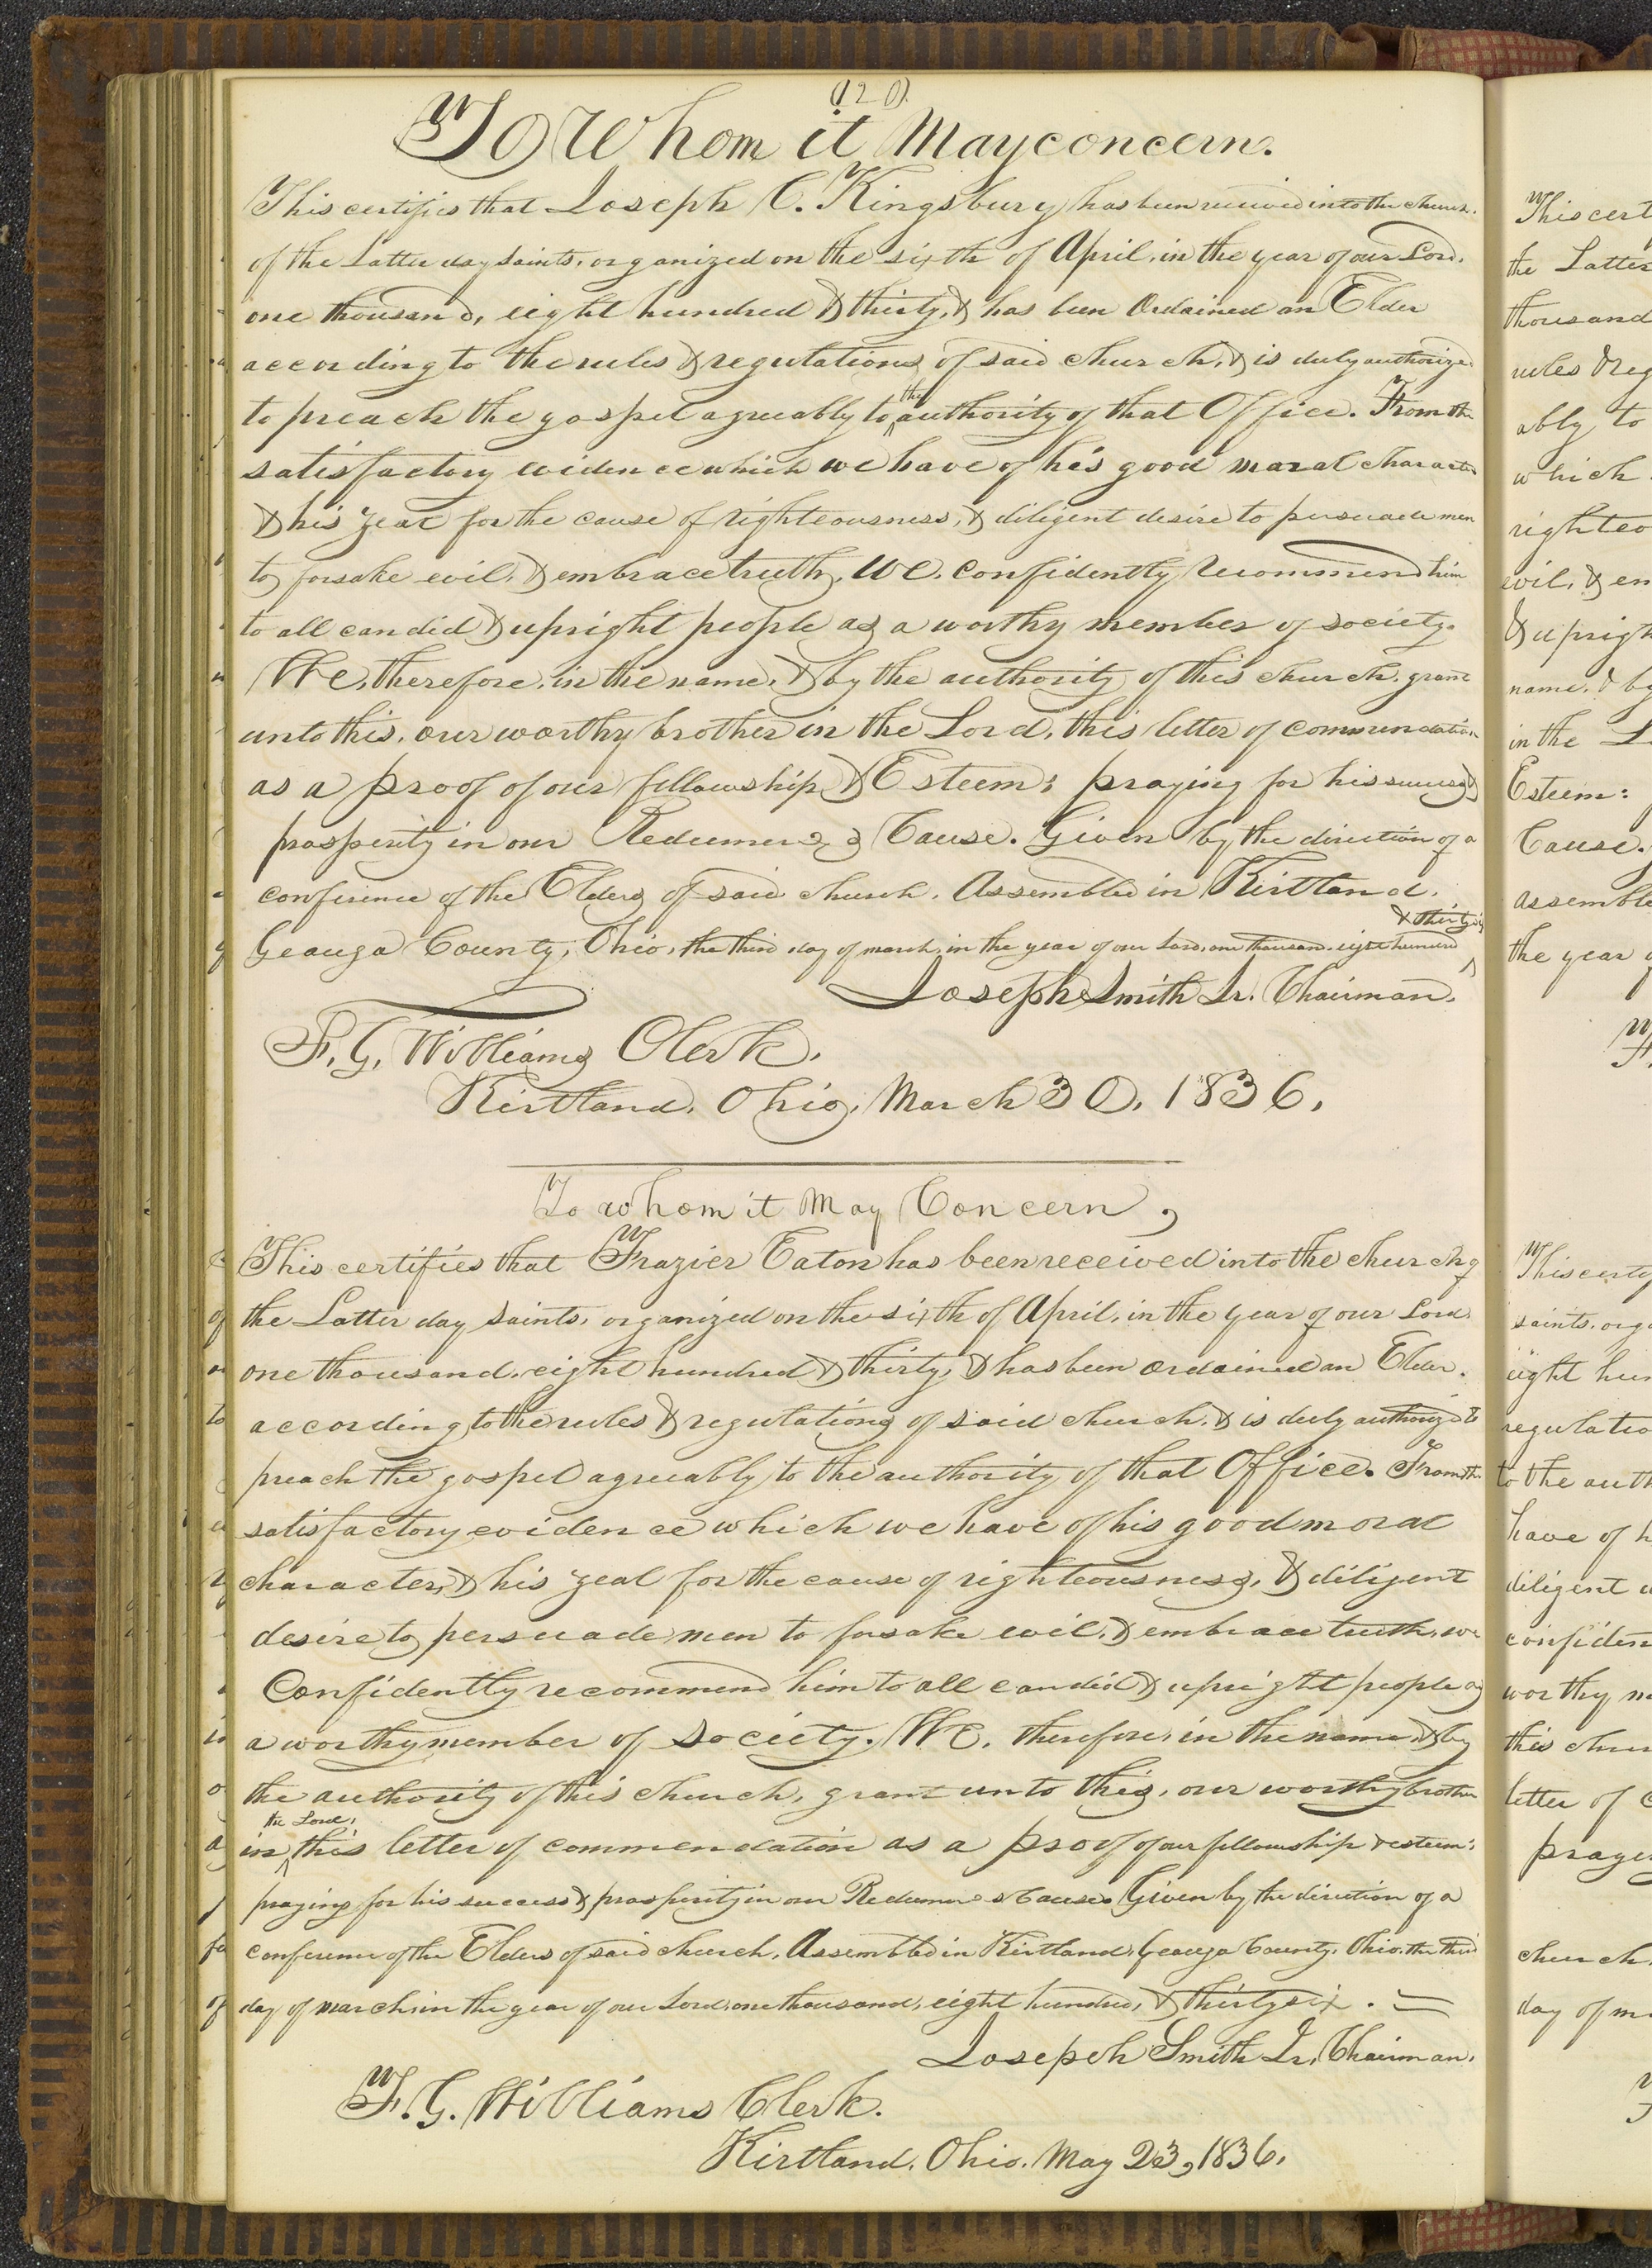 (120)
To Whom it May concern.
This certifies that Joseph C. Kingsbury has been received into the church
of the Latter day saints, organized on the sixth of April, in the year of our Lord,
one thousand, eight hundred & thirty, & has been Ordained an Elder
according to the rules & regulations of said church, & is duly authorized
to preach the gospel agreeably to ^the authority of that Office. From the
satisfactory evidence which we have of his good moral character
& his zeal for the cause of righteousness, & diligent desire to persuade men
to forsake evil, & embrace truth, we, confidently recommend him
to all candid & upright people as a worthy member of society.
We, therefore, in the name, & by the authority of this church, grant
unto this, our worthy brother in the Lord, this letter of commendation
as a proof of our fellowship & Esteem: praying for his success &
prosperity in our Redeemer's Cause. Given by the direction of a
conference of the Elders of said church, Assembled in Kirtland,
Geauga County, Ohio, the third day of march, in the year of our Lord, one thousand, eight hundred ^& thirty six
Joseph Smith Jr. Chairman.
F. G. Williams Clerk.
Kirtland, Ohio, March 30, 1836.
To whom it May Concern,
This certifies that Frazier Eaton has been received into the church of
the Latter day saints, organized on the sixth of April, in the year of our Lord
one thousand, eight hundred & thirty, & has been ordained an Elder,
according to the rules & regulations of said church, & is duly authorized to
preach the gospel agreeably to the authority of that Office. From the
satisfactory evidence which we have of his good moral
character, & his zeal for the cause of righteousness, & diligent
desire to persuade men to forsake evil, & embrace truth, we
Confidently recommend him to all candid & upright people as
a worthy member of society. We, therefore, in the name, & by
the authority of this church, grant unto this, our worthy brother
in ^the Lord, this letter of commendation as a proof of our fellowship & esteem:
praying for his success & prosperity in our Redeemer's Cause. Given by the direction of a
conference of the Elders of said church, Assembled in Kirtland, Geauga County, Ohio, the third
day of march in the year of our Lord, one thousand, eight hundred, & thirty six. =
Joseph Smith Jr. Chairman.
F. G. Williams Clerk.
Kirtland, Ohio. May 23, 1836.
This cert
the Latter
thousand
rules & reg
ably to
which
righteo
evil, & em
& uprigh
name, & by
in the L
Esteem:
Cause.
assemble
the year o
This certif
saints, orga
eight hun
regulatio
to the auth
have of h
diligent d
confiden
worthy me
this chur
letter of c
prayi
church,
day of m